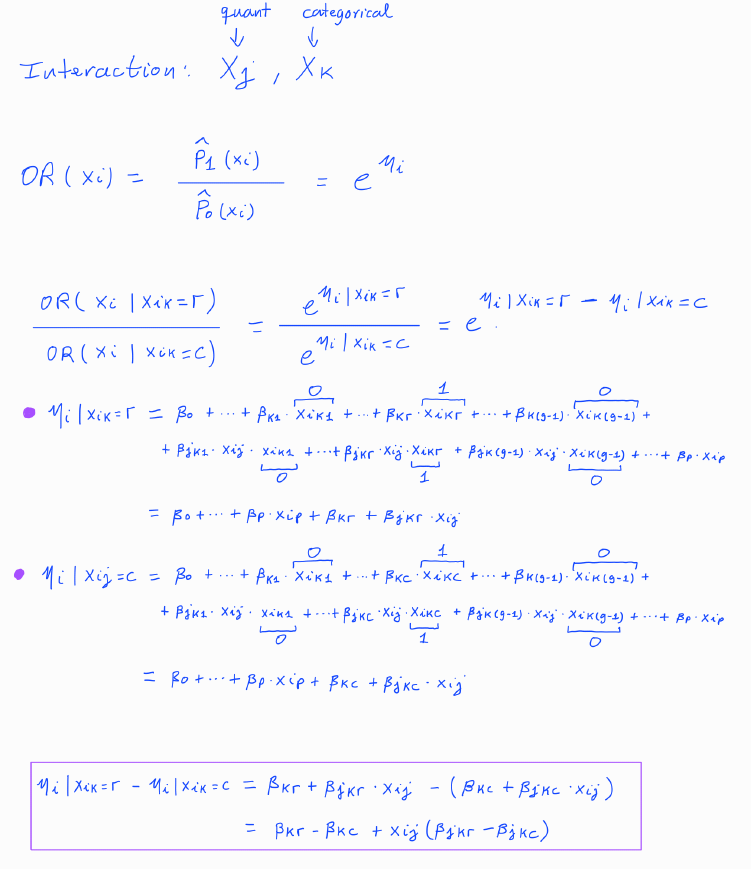 quant categorical
↓ ↓
Interaction: Xj , Xk
OR(xi) = P̂1(xi) / P̂0(xi) = e^{ηi}
OR(xi | xik=r) / OR(xi | xik=c) = e^{ηi|xik=r} / e^{ηi|xik=c} = e^{ηi|xik=r − ηi|xik=c}
0 1 0
• ηi|xik=r = β0 + ··· + βk1 · xik1 + ··· + βkr · xikr + ··· + βk(g-1) · xik(g-1) +
+ βjk1 · xij · xik1 + ··· + βjkr · xij · xikr + βjk(g-1) · xij · xik(g-1) + ··· + βp · xip
0 1 0
= β0 + ··· + βp · xip + βkr + βjkr · xij
0 1 0
• ηi|xij=c = β0 + ··· + βk1 · xik1 + ··· + βkc · xikc + ··· + βk(g-1) · xik(g-1) +
+ βjk1 · xij · xik1 + ··· + βjkc · xij · xikc + βjk(g-1) · xij · xik(g-1) + ··· + βp · xip
0 1 0
= β0 + ··· + βp · xip + βkc + βjkc · xij
ηi|xik=r − ηi|xik=c = βkr + βjkr · xij − (βkc + βjkc · xij)
= βkr − βkc + xij (βjkr − βjkc)